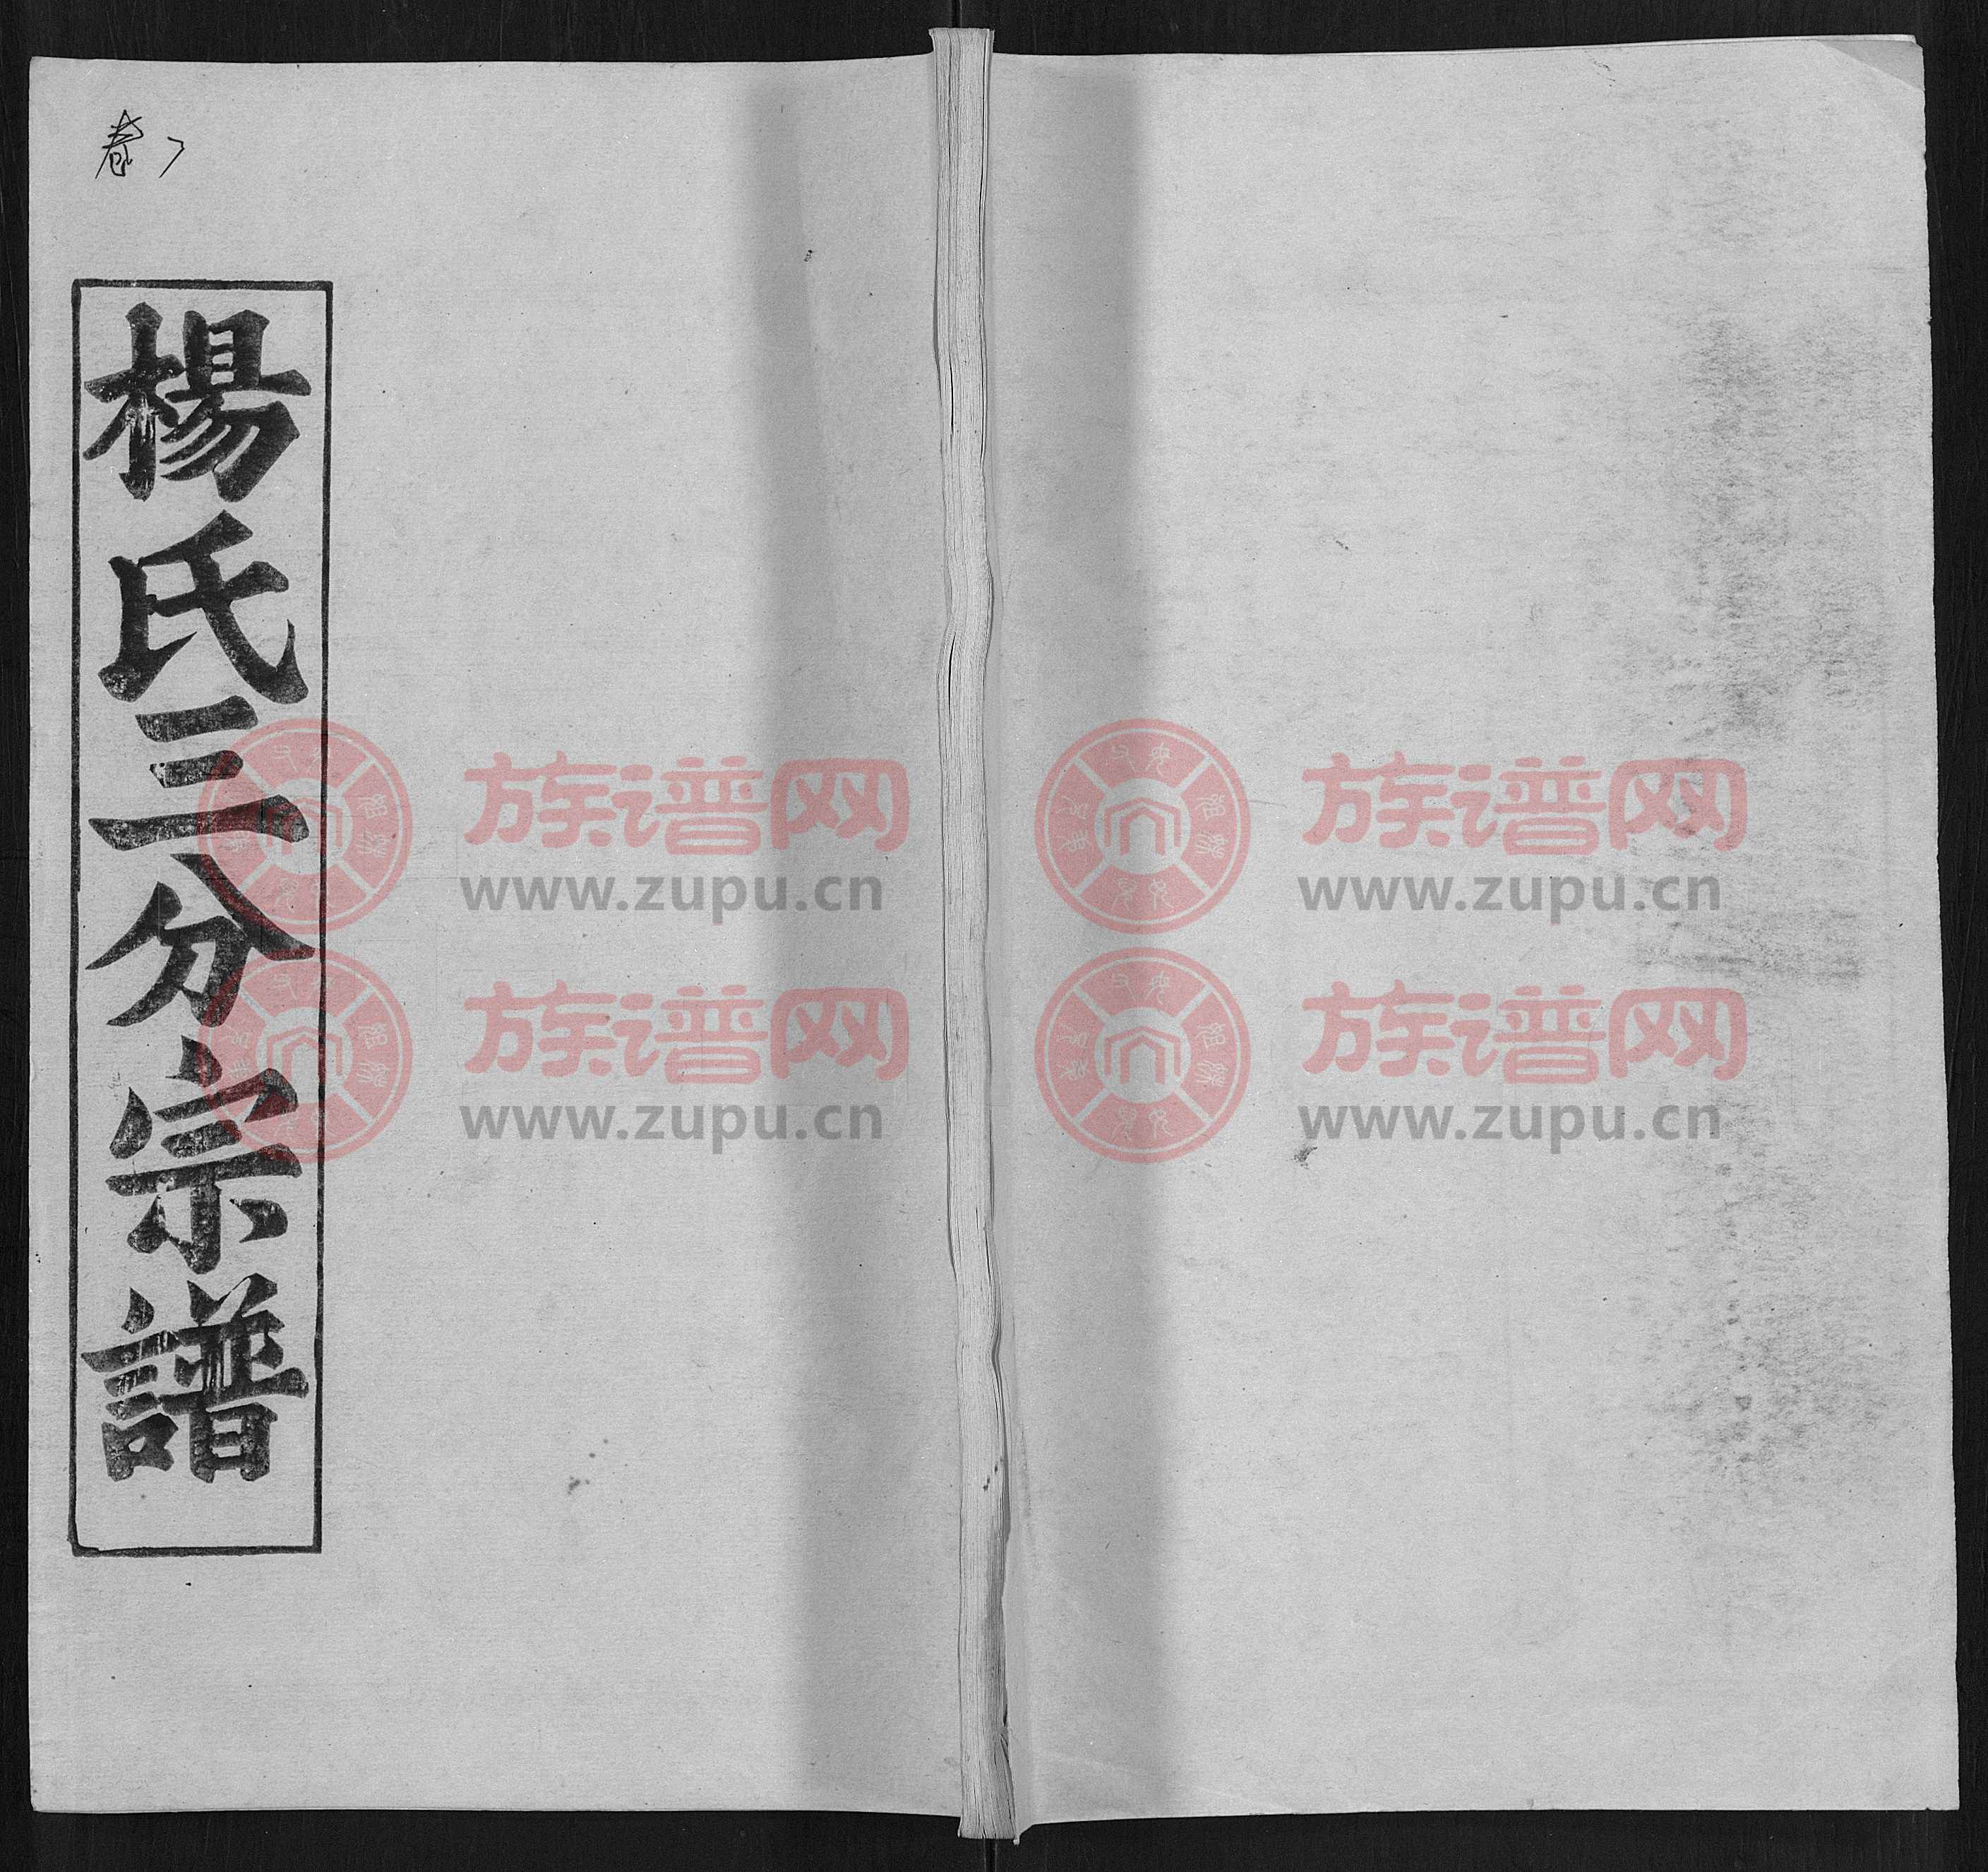 卷
楊氏三分宗譜
族谱网
www.zupu.cn
族谱网
www.zupu.cn
族谱网
www.zupu.cn
族谱网
www.zupu.cn